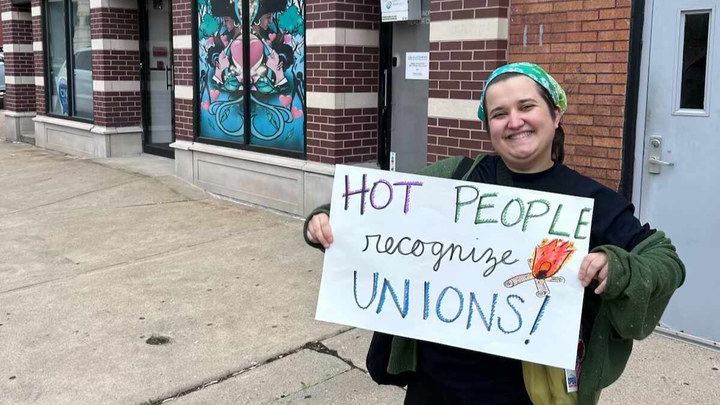 HOT PEOPLE
recognize
UNIONS!